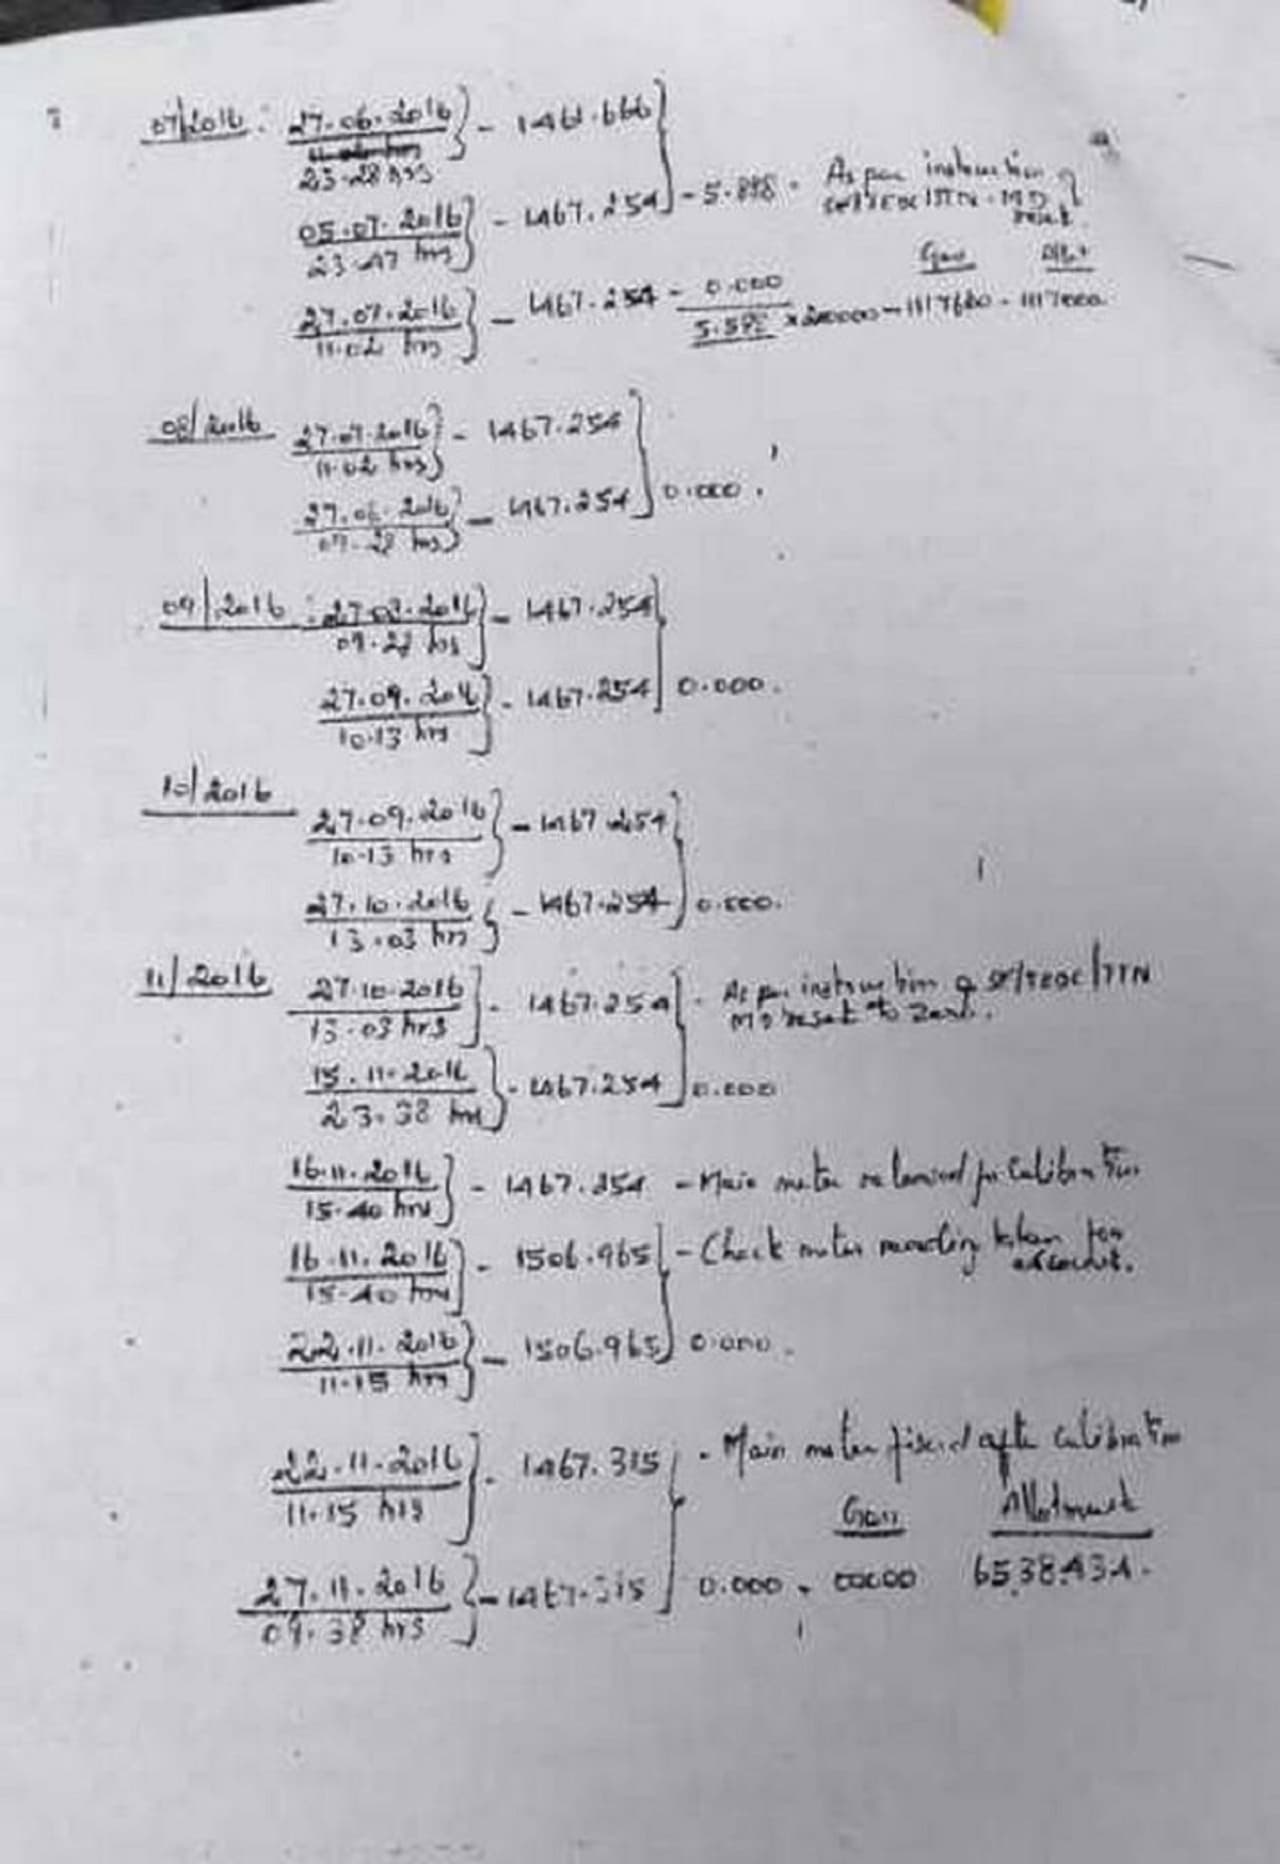 07/2016 : 27.06.2016 } - 1461.666
23.28 hrs
05.07.2016 } - 1467.254 - 5.588 . As per instruction of
23.47 hrs MD reset.
Gen Allot
27.07.2016 } - 1467.254 - 0.000
11.02 hrs 5.588 x 200000 - 1117600 - 1117000
08/2016 27.07.2016 } - 1467.254
11.02 hrs
2016 } - 1467.254 ] 0.000 .
09.28 hrs
09/2016 : 2016 } - 1467.254
09.28 hrs
27.09.2016 } - 1467.254 ] 0.000 .
10.13 hrs
10/2016
27.09.2016 } - 1467.254
10.13 hrs
27.10.2016 } - 1467.254 } 0.000.
13.03 hrs
11/2016 27.10.2016 } - 1467.254 - As per instruction of SE/TEDC/TTN
13.03 hrs MD reset to Zero.
15.11.2016 } - 1467.254 ] 0.000
23.38 hrs
16.11.2016 } - 1467.254 - Main meter released for Calibration
15.40 hrs
16.11.2016 } - 1506.965 - Check meter reading taken for
15.40 hrs account.
22.11.2016 } - 1506.965 ] 0.000 .
11.15 hrs
22.11.2016 } - 1467.315 - Main meter fixed after calibration
11.15 hrs
Gen Allotment
27.11.2016 } - 1467.315 ] 0.000 . 00000 6538434 .
09.38 hrs